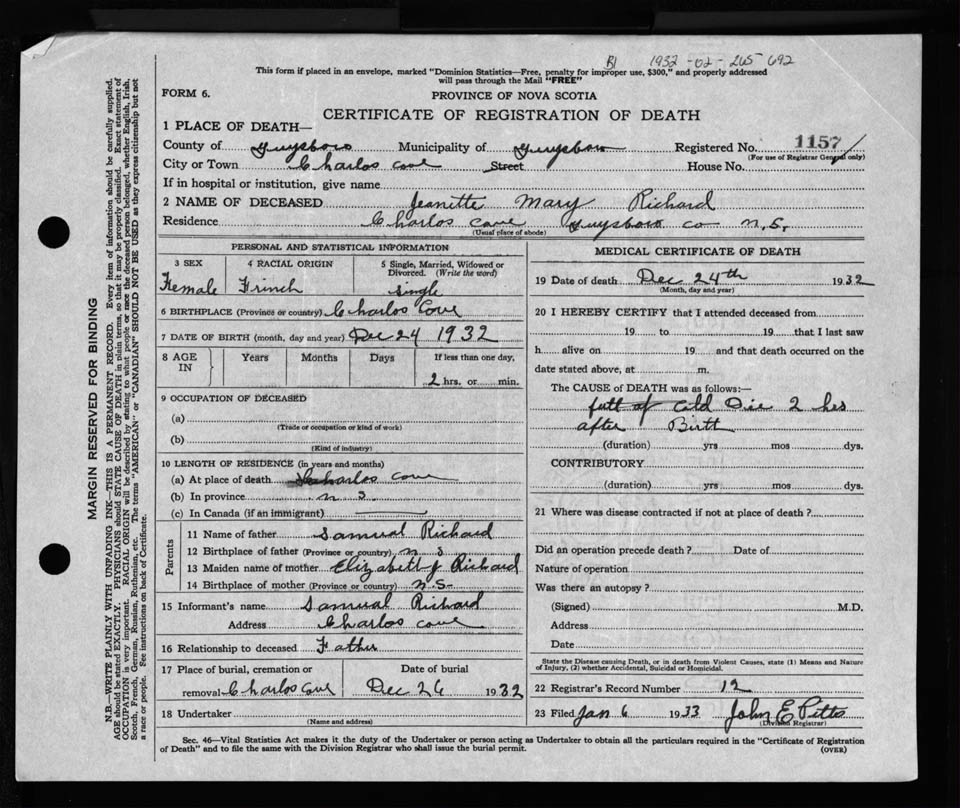 B1 1932-02-265-692
This form if placed in an envelope, marked "Dominion Statistics—Free, penalty for improper use, $300," and properly addressed
will pass through the Mail "FREE"
FORM 6.
PROVINCE OF NOVA SCOTIA
CERTIFICATE OF REGISTRATION OF DEATH
1 PLACE OF DEATH—
County of Guysboro Municipality of Guysboro Registered No. 1157
(For use of Registrar General only)
City or Town Charlos Cove Street House No.
If in hospital or institution, give name
2 NAME OF DECEASED Jeanette Mary Richard
Residence Charlos Cove Guysboro co N.S.
(Usual place of abode)
PERSONAL AND STATISTICAL INFORMATION
3 SEX 4 RACIAL ORIGIN 5 Single, Married, Widowed or Divorced. (Write the word)
Female Frinch single
6 BIRTHPLACE (Province or country) Charlos Cove
7 DATE OF BIRTH (month, day and year) Dec 24 1932
8 AGE IN Years Months Days If less than one day,
2 hrs. or min.
9 OCCUPATION OF DECEASED
(a)
(Trade or occupation or kind of work)
(b)
(Kind of industry)
10 LENGTH OF RESIDENCE (in years and months)
(a) At place of death Charlos Cove
(b) In province n s
(c) In Canada (if an immigrant)
Parents
11 Name of father Samual Richard
12 Birthplace of father (Province or country) n s
13 Maiden name of mother Elizabeth J Richard
14 Birthplace of mother (Province or country) N.S.
15 Informant's name Samual Richard
Address Charlos Cove
16 Relationship to deceased Father
17 Place of burial, cremation or Date of burial
removal Charlos Cove Dec 26 1932
18 Undertaker
(Name and address)
MEDICAL CERTIFICATE OF DEATH
19 Date of death Dec 24th 1932
(Month, day and year)
20 I HEREBY CERTIFY that I attended deceased from
19 to 19 that I last saw
h alive on 19 and that death occurred on the
date stated above, at m.
The CAUSE of DEATH was as follows:—
full of Cold Die 2 hrs
after Birth
(duration) yrs mos dys.
CONTRIBUTORY
(duration) yrs mos dys.
21 Where was disease contracted if not at place of death?
Did an operation precede death? Date of
Nature of operation
Was there an autopsy?
(Signed) M.D.
Address
Date
State the Disease causing Death, or in death from Violent Causes, state (1) Means and Nature
of Injury, (2) whether Accidental, Suicidal or Homicidal.
22 Registrar's Record Number 12
23 Filed Jan 6 1933 John E Pitts
(Division Registrar)
Sec. 46—Vital Statistics Act makes it the duty of the Undertaker or person acting as Undertaker to obtain all the particulars required in the "Certificate of Registration
of Death" and to file the same with the Division Registrar who shall issue the burial permit.
(OVER)
MARGIN RESERVED FOR BINDING
N.B.—WRITE PLAINLY WITH UNFADING INK—THIS IS A PERMANENT RECORD. Every item of information should be carefully supplied.
AGE should be stated EXACTLY. PHYSICIANS should STATE CAUSE OF DEATH in plain terms, so that it may be properly classified. Exact statement of
OCCUPATION is very important. RACIAL ORIGIN will be described by stating to what people or race the deceased person belonged, whether English, Irish,
Scotch, French, German, Russian, Ruthenian, etc. The terms "AMERICAN" or "CANADIAN" SHOULD NOT BE USED as they express citizenship but not
a race or people. See instructions on back of Certificate.